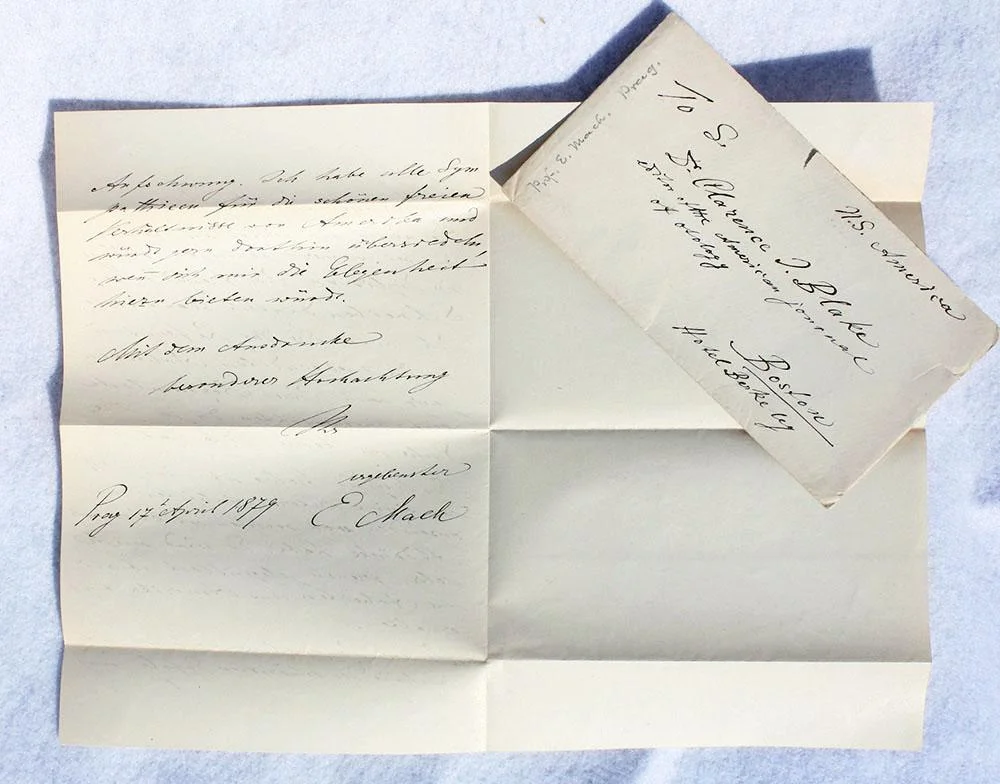 Aufschwung. Ich habe alle Sym
pathieen für die schönen freien
Verhältnisse von Amerika und
würde gern dorthin übersiedeln,
weñ sich mir die Gelegenheit
hiezu bieten würde.
Mit dem Ausdrucke
besonderer Hochachtung
Ihr
ergebenster
Prag 17 April 1879 E Mach
Prof. E. Mach. Prag.
To S.
Dr Clarence J. Blake
Editor of the American journal
of otology
Boston
Hotel Berkeley
U.S. America